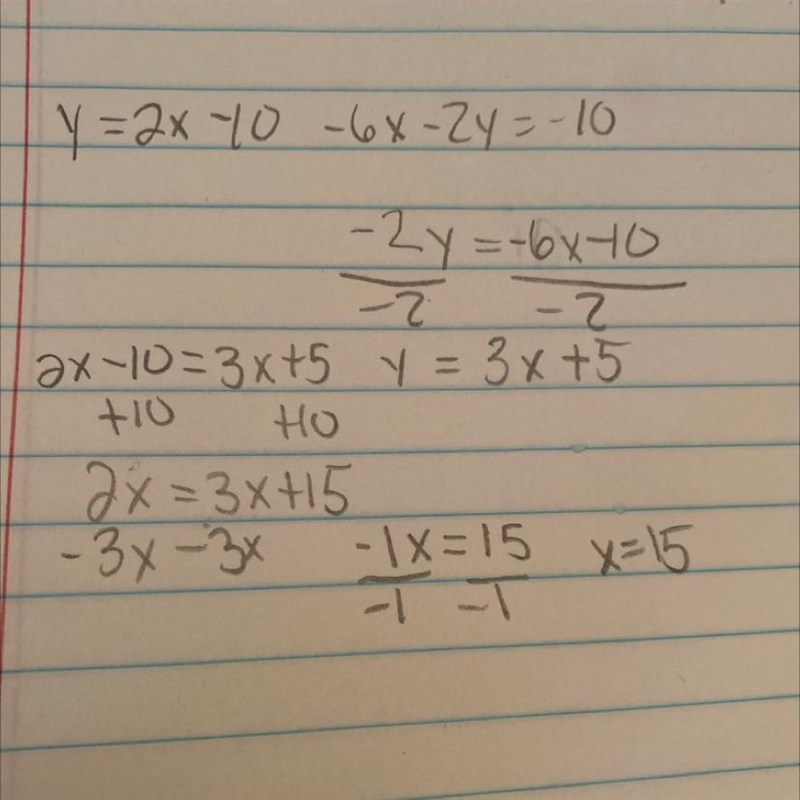 y = 2x - 10   -6x - 2y = -10
-2y = -6x - 10
-2   -2
2x - 10 = 3x + 5   y = 3x + 5
+10   +10
2x = 3x + 15
-3x   -3x   -1x = 15   x = 15
-1   -1